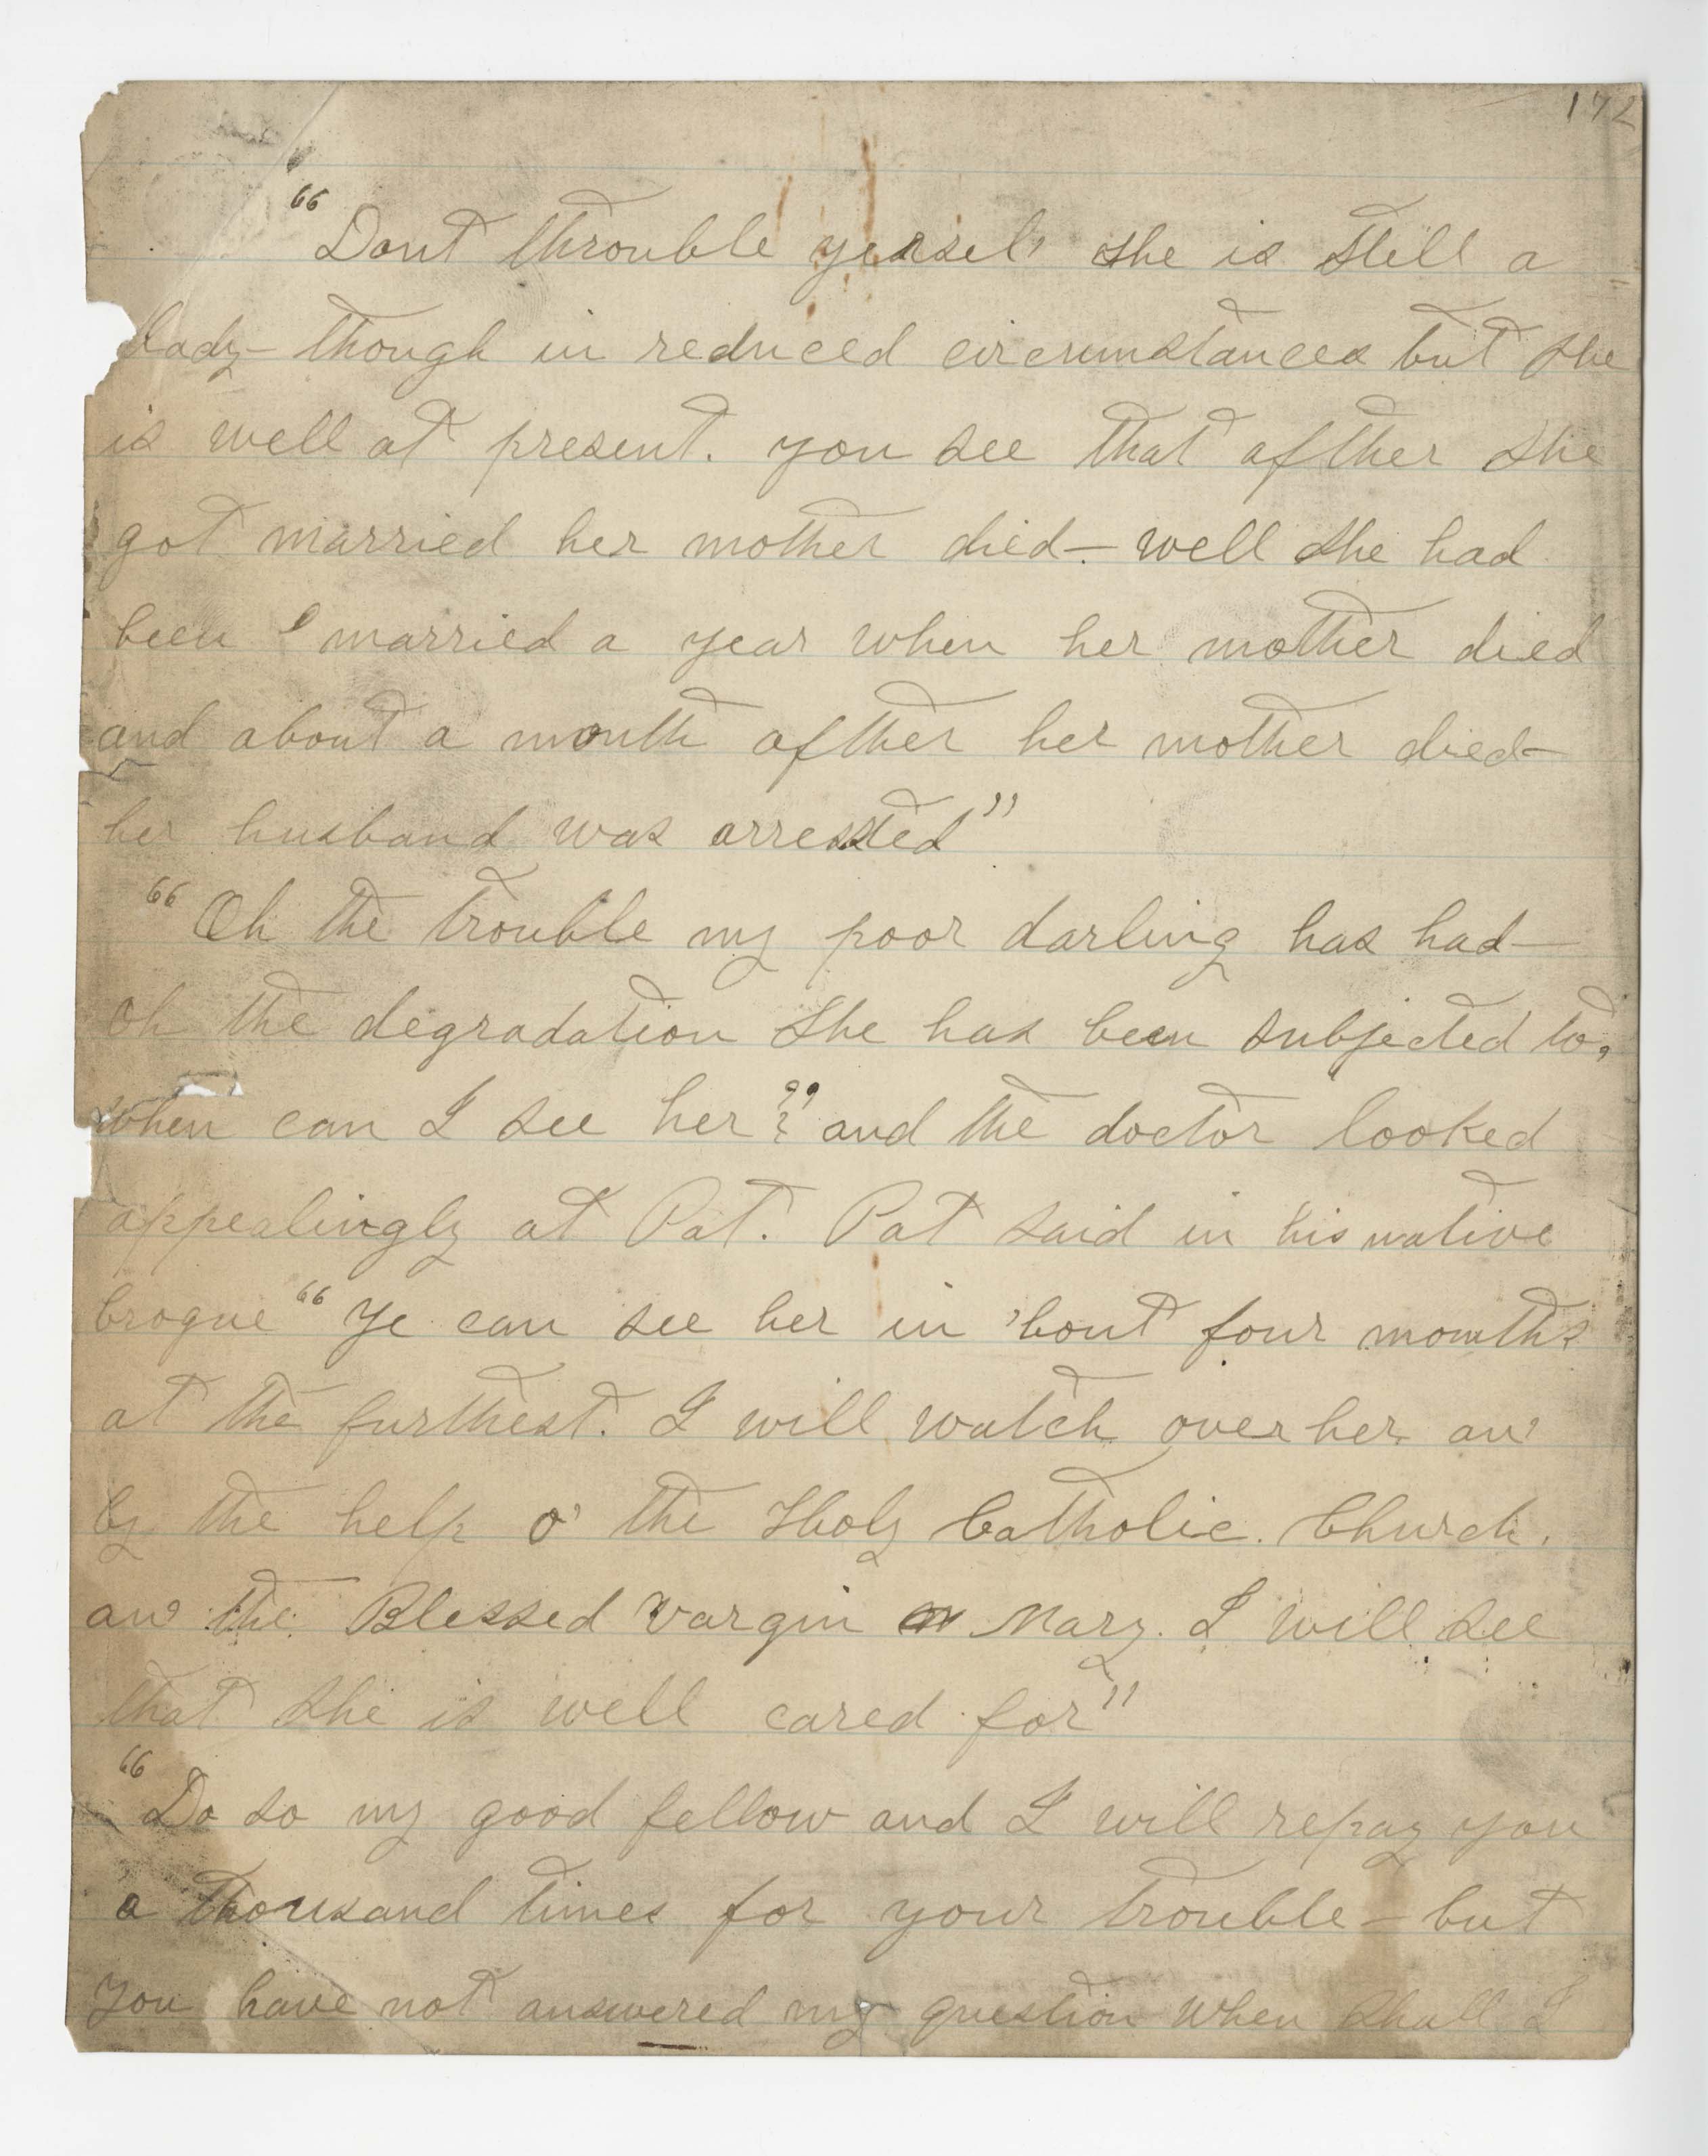 172
“Dont throuble yersel' she is still a
Lady— though in reduced circumstances but she
is well at present. you see that afther she
got married her mother died— well she had
been married a year when her mother died
and about a month afther her mother died—
her husband was arrested”
“Oh the trouble my poor darling has had—
Oh the degradation she has been subjected to,
when can I see her?” and the doctor looked
appealingly at Pat. Pat said in his native
brogue “Ye can see her in 'bout four months
at the furthest. I will watch over her an'
by the help o' the Holy Catholic. Church.
an' the Blessed Vargin Mary. I will see
that she is well cared for”
“Do so my good fellow and I will repay you
a thousand times for your trouble— but
you have not answered my question when shall I